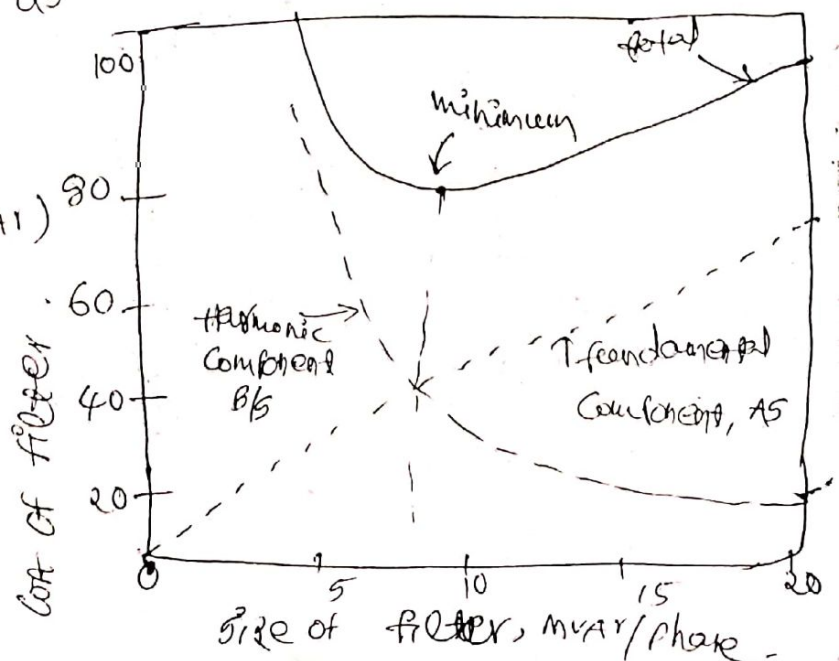 100
total
minimum
80
60
Harmonic
Component
B/S
fundamental
Component, AS
40
20
0
5
10
15
20
Cost of filter.
Size of filter, MVAr/Phase